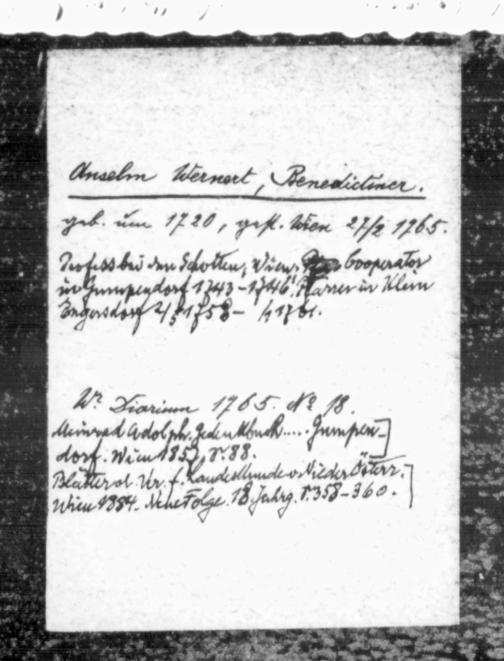 Anselm Wernert, Benedictiner.
geb. um 1720, gest. Wien 27/2 1765.
Profess bei den Schotten, Wien. Cooperator
in Gumpendorf 1743-1746. Pfarrer in Klein
Engersdorf 2/5 1758 -
Wr. Diarium 1765. No 18.
Meinrad Adolph. Gedenkbuch..... Gumpen-
dorf. Wien 1857, S. 88.
Blätter d. Ver. f. Landeskunde v. Nieder Österr.
Wien 1884. Neue Folge. 18. Jahrg. S. 358-360.